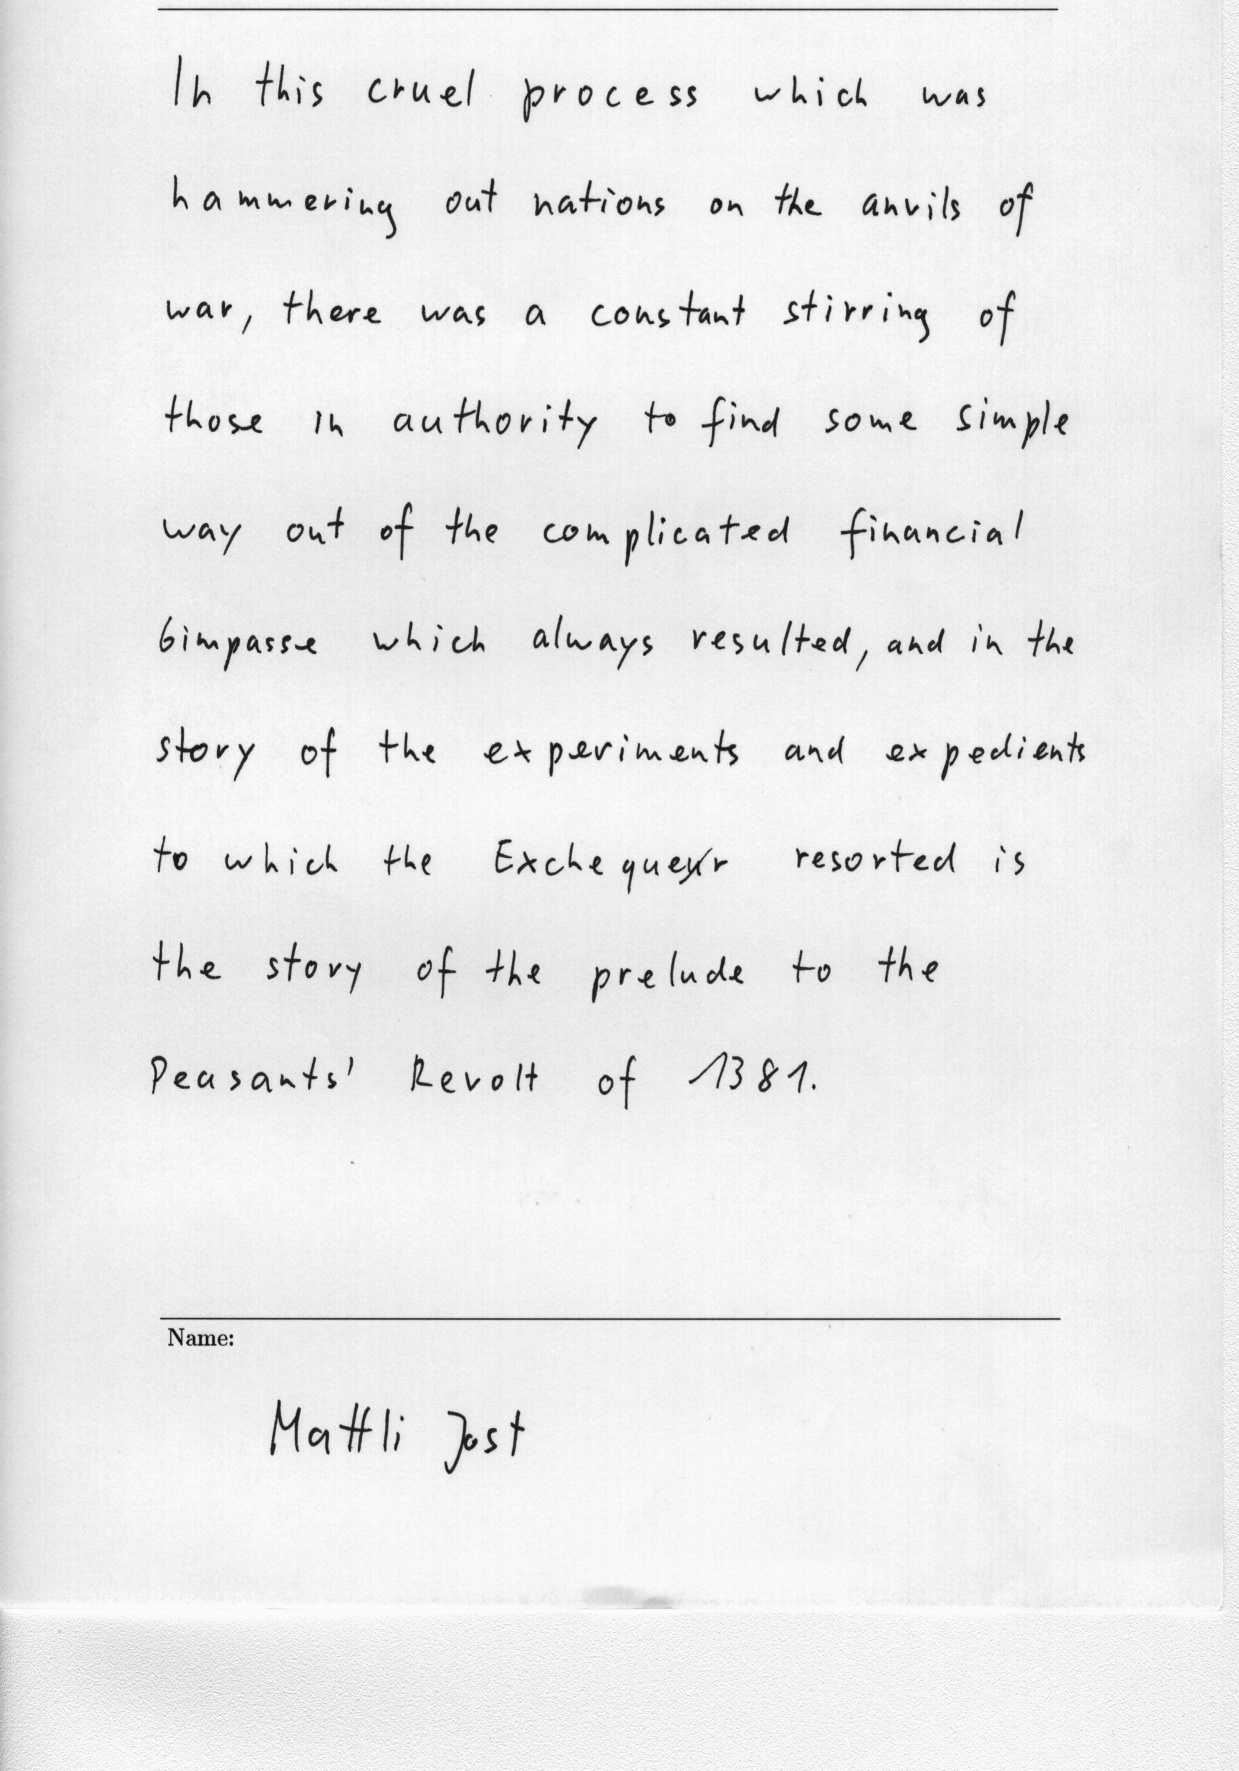 In this cruel process which was
hammering out nations on the anvils of
war, there was a constant stirring of
those in authority to find some simple
way out of the complicated financial
6impasse which always resulted, and in the
story of the experiments and expedients
to which the Exchequer resorted is
the story of the prelude to the
Peasants' Revolt of 1381.
Name:
Mattli Jost